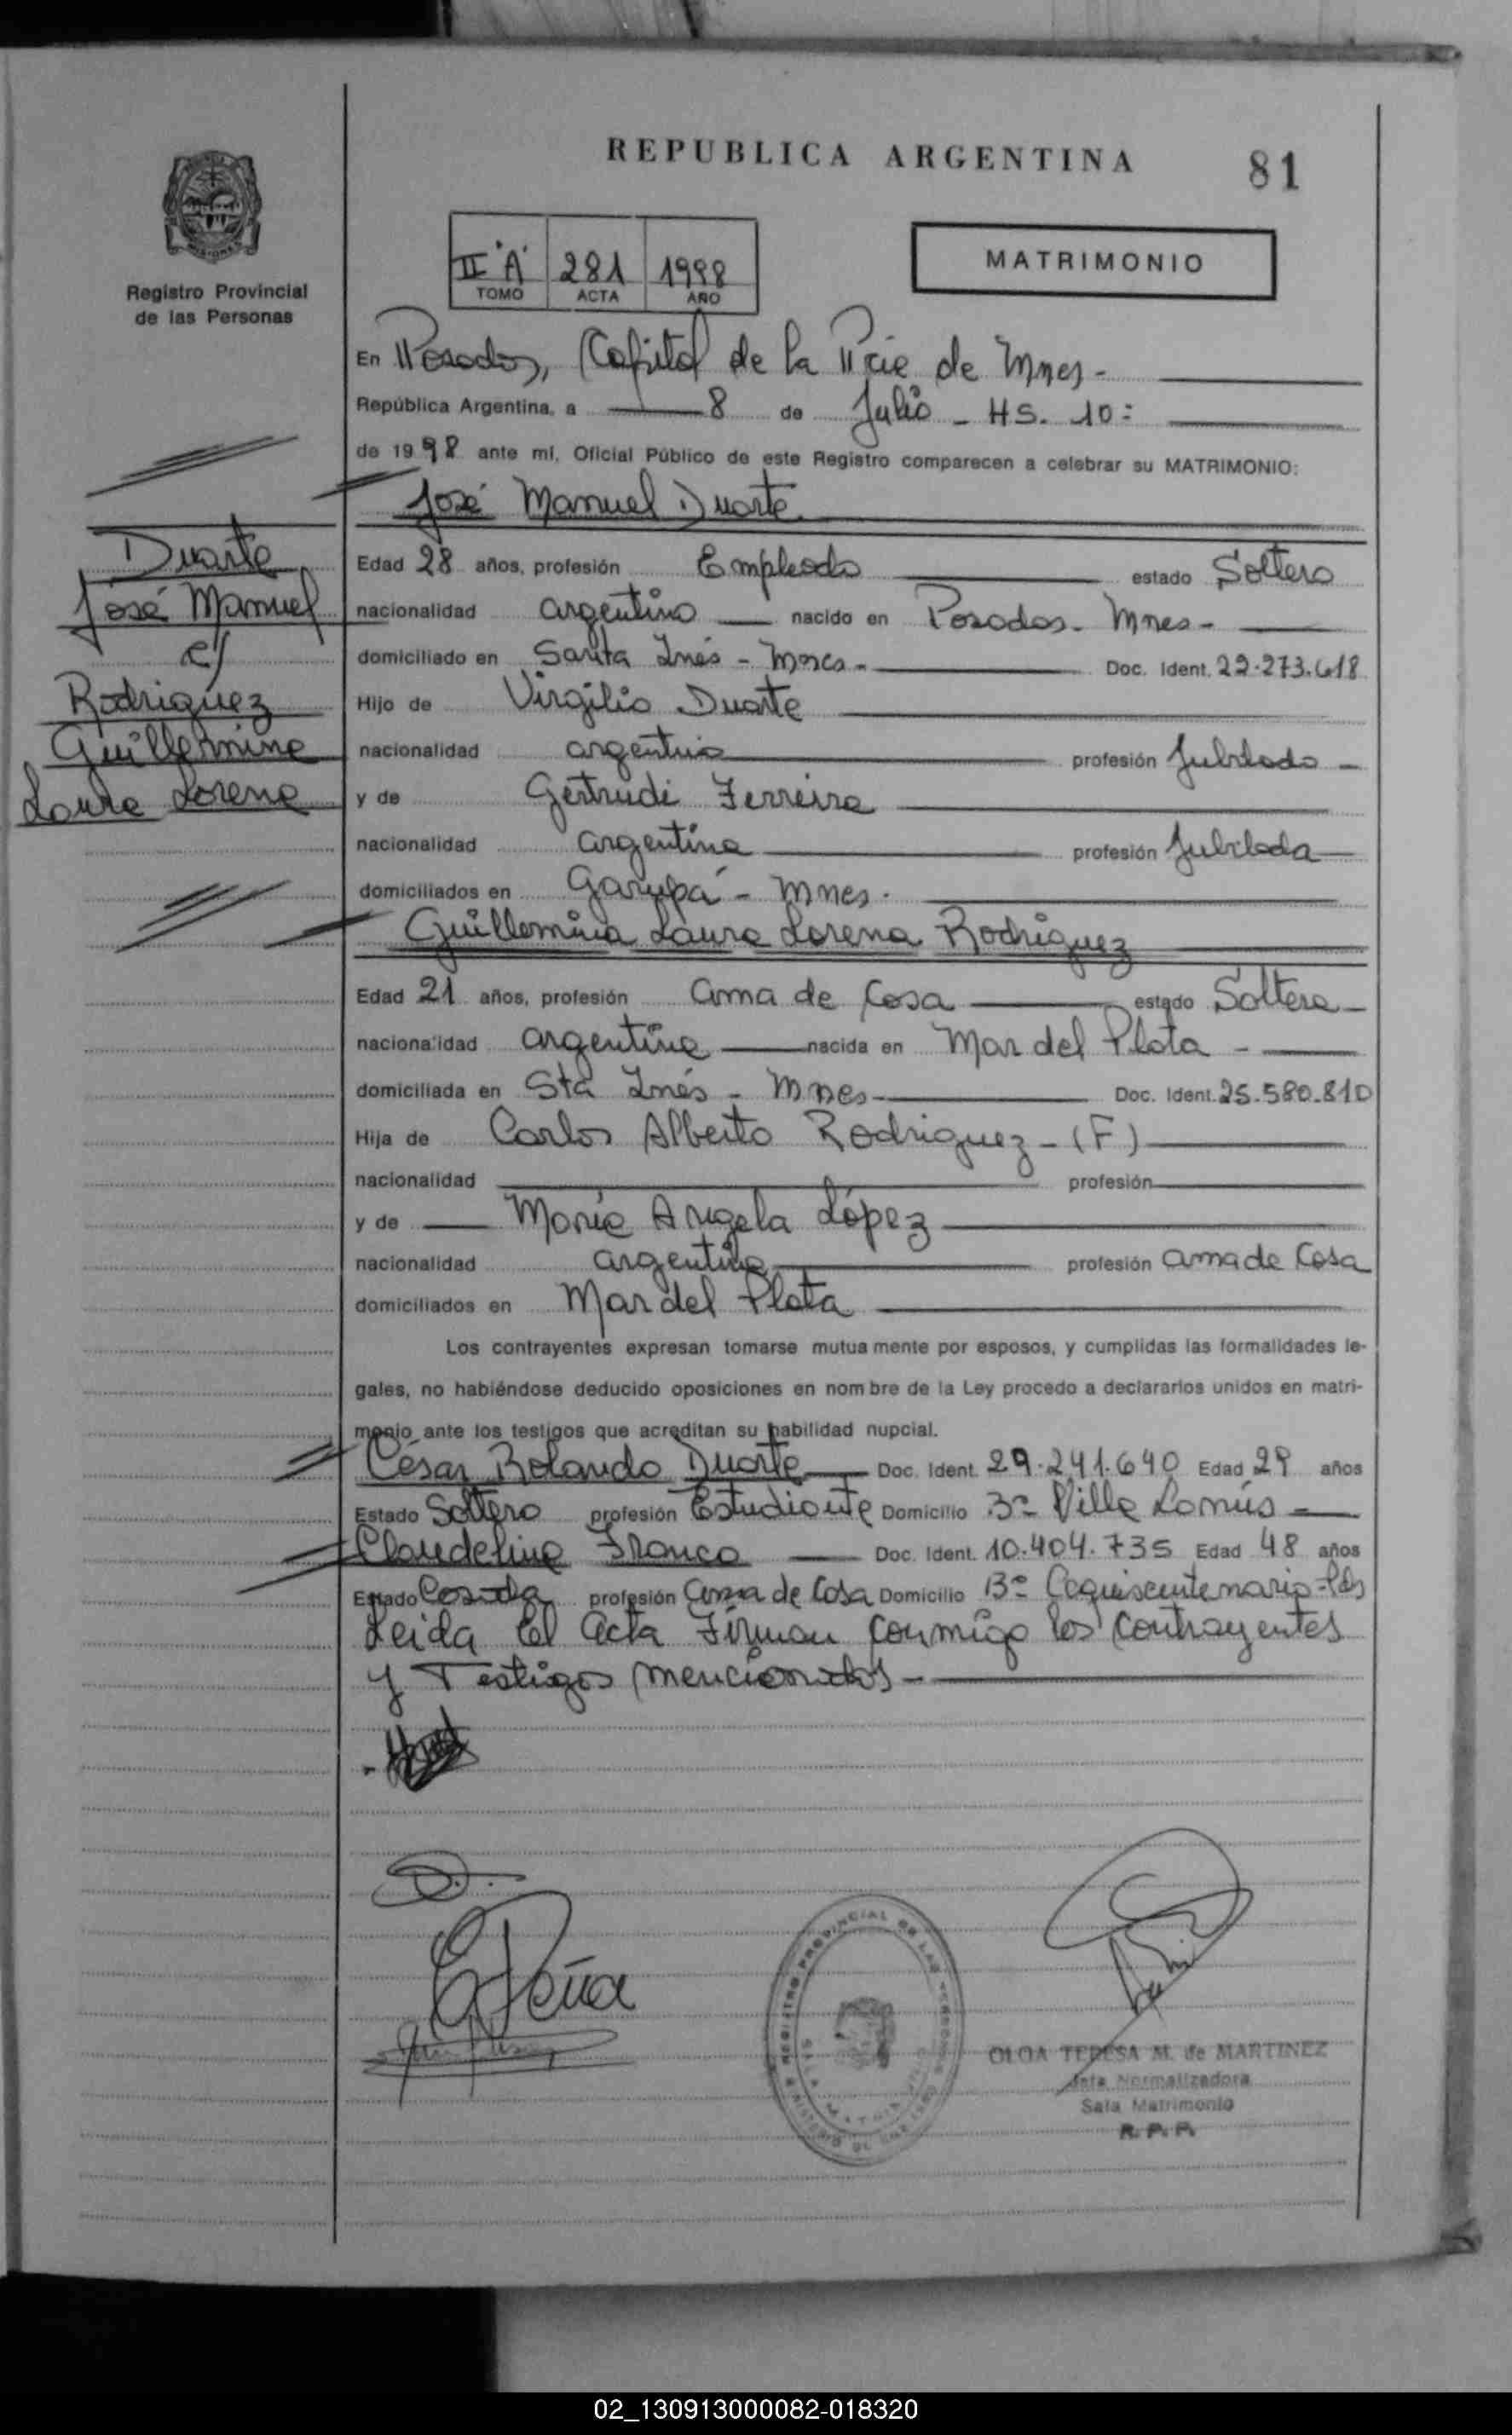 REPUBLICA ARGENTINA
81
MISIONES
Registro Provincial
de las Personas
II "A" 281 1998
TOMO ACTA AÑO
MATRIMONIO
En Posadas, Capital de la Pcie de Mnes -
República Argentina, a 8 de Julio - HS. 10:
de 1998 ante mí, Oficial Público de este Registro comparecen a celebrar su MATRIMONIO:
José Manuel Duarte
Duarte
José Manuel
c/
Rodriguez
Guillermina
Laura Lorena
Edad 28 años, profesión Empleado estado Soltero
nacionalidad argentino nacido en Posadas - Mnes -
domiciliado en Santa Inés - Mnes - Doc. Ident. 22.273.618
Hijo de Virgilio Duarte
nacionalidad argentino profesión Jubilado -
y de Gertrudi Ferreira
nacionalidad argentina profesión Jubilada
domiciliados en Garupá - Mnes -
Guillermina Laura Lorena Rodriguez
Edad 21 años, profesión ama de Casa estado Soltera
nacionalidad argentina nacida en Mar del Plata -
domiciliada en Sta Inés - Mnes - Doc. Ident. 25.580.810
Hija de Carlos Alberto Rodriguez - (F)
nacionalidad profesión
y de María Angela López
nacionalidad argentina profesión ama de Casa
domiciliados en Mar del Plata
Los contrayentes expresan tomarse mutua mente por esposos, y cumplidas las formalidades le-
gales, no habiéndose deducido oposiciones en nom bre de la Ley procedo a declararlos unidos en matri-
monio ante los testigos que acreditan su habilidad nupcial.
César Rolando Duarte Doc. Ident. 29.241.640 Edad 29 años
Estado Soltero profesión Estudiante Domicilio Bº Villa Lanús -
Claudelina Franco Doc. Ident. 10.404.735 Edad 48 años
Estado Casada profesión ama de Casa Domicilio Bº Cequicentenario - Pdas
Leida el acta Firman conmigo los contrayentes
y Testigos mencionados -
OLGA TERESA M. de MARTINEZ
Jefa Normalizadora
Sala Matrimonio
R. P. P.
02_130913000082-018320